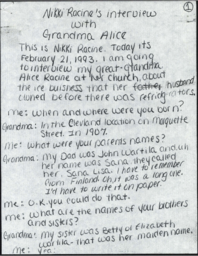 1
Nikki Racine's interview
with
Grandma Alice
This is Nikki Racine. Today its
February 21, 1993. I am going
to interview my great-grandma
Alice Racine at her church, about
the ice business that her father, husband
owned before there was refrigerators.
me: when and where were you born?
Grandma: In the Cleveland location on Maquette
Street. In 1907.
me: What were your parents names?
Grandma: My Dad was John Wartila and uh
her name was Sana, they called
her, Sana Lisa. I have to remember
from Finland oh it was a long one.
I'd have to write it on paper.
me: O.K. you could do that.
me: what are the names of your brothers
and sisters?
Grandma: my sister was Betty or Elizabeth
Wartila- that was her maiden name.
me: